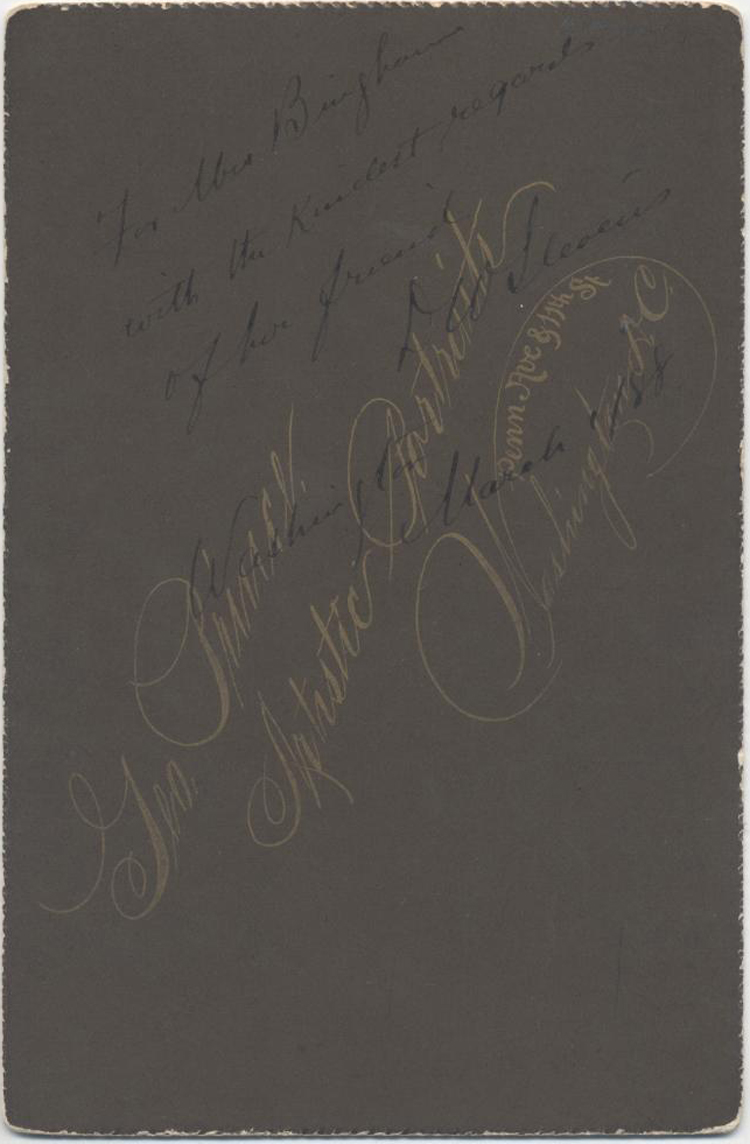 For Mrs Bingham
with the kindest regards
of her friend
Stevens
Washington
March
Geo Prince
Artistic Portraits
Penn Ave & 11th St
Washington D.C.